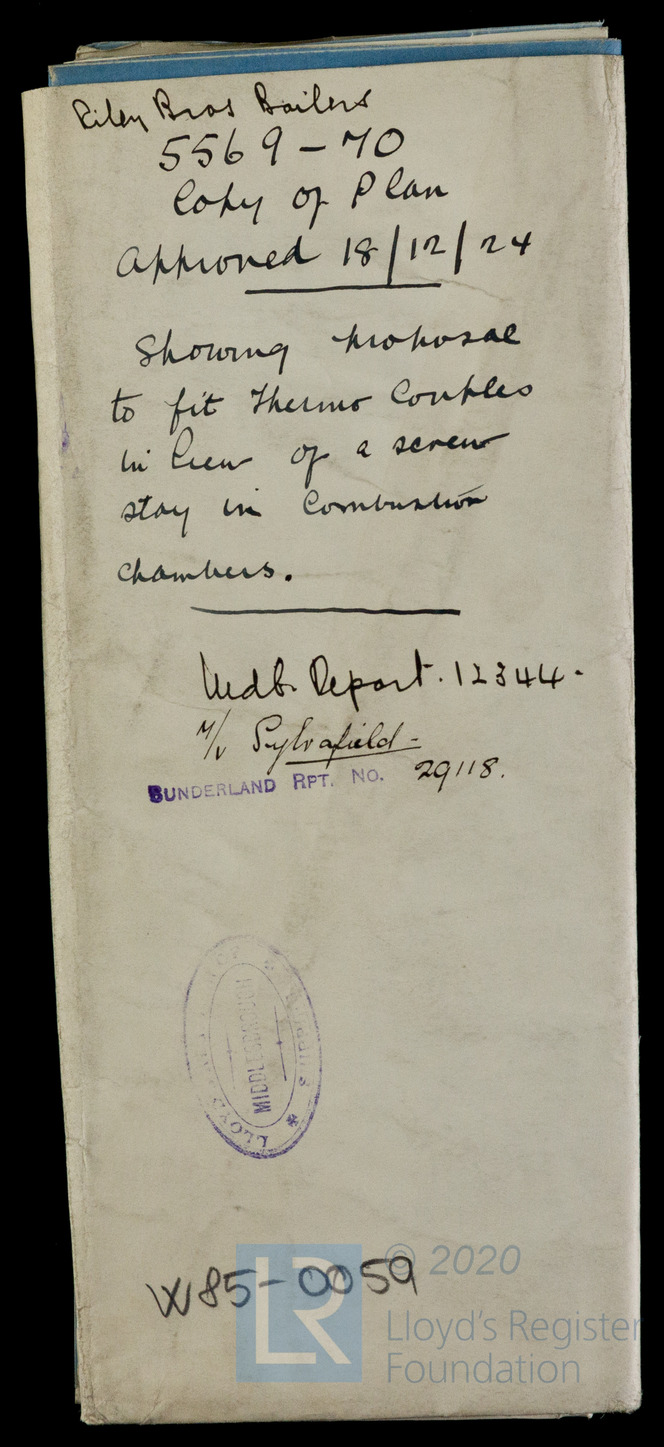 Riley Bros Boilers
5569-70
Copy of Plan
Approved 18/12/24
Showing proposal
to fit Thermo Couples
in lieu of a screw
stay in Combustion
chambers.
Mdb. Report. 12344.
M/V Sylvafield
SUNDERLAND RPT. NO. 29118.
LLOYD'S
MIDDLESBROUGH
W85-0059
LR
© 2020
Lloyd's Register
Foundation